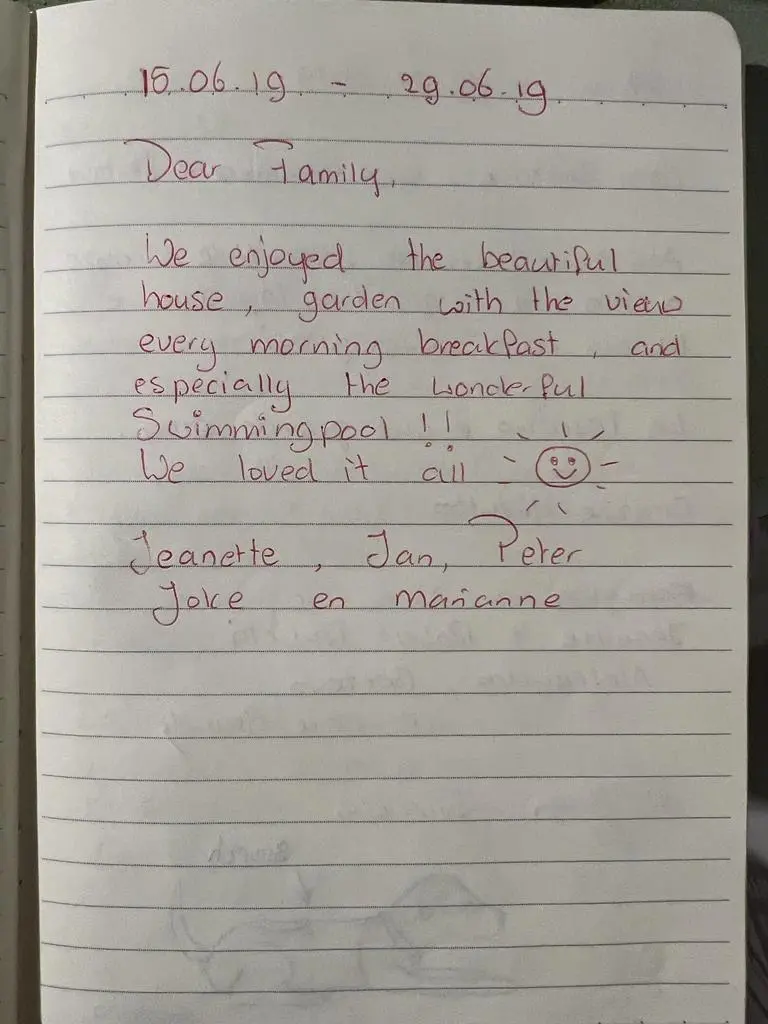 15.06.19 - 29.06.19
Dear Family,
We enjoyed the beautiful
house, garden with the view
every morning breakfast, and
especially the wonderful
Swimmingpool !!
We loved it all
Jeanette, Jan, Peter
Joke en Marianne